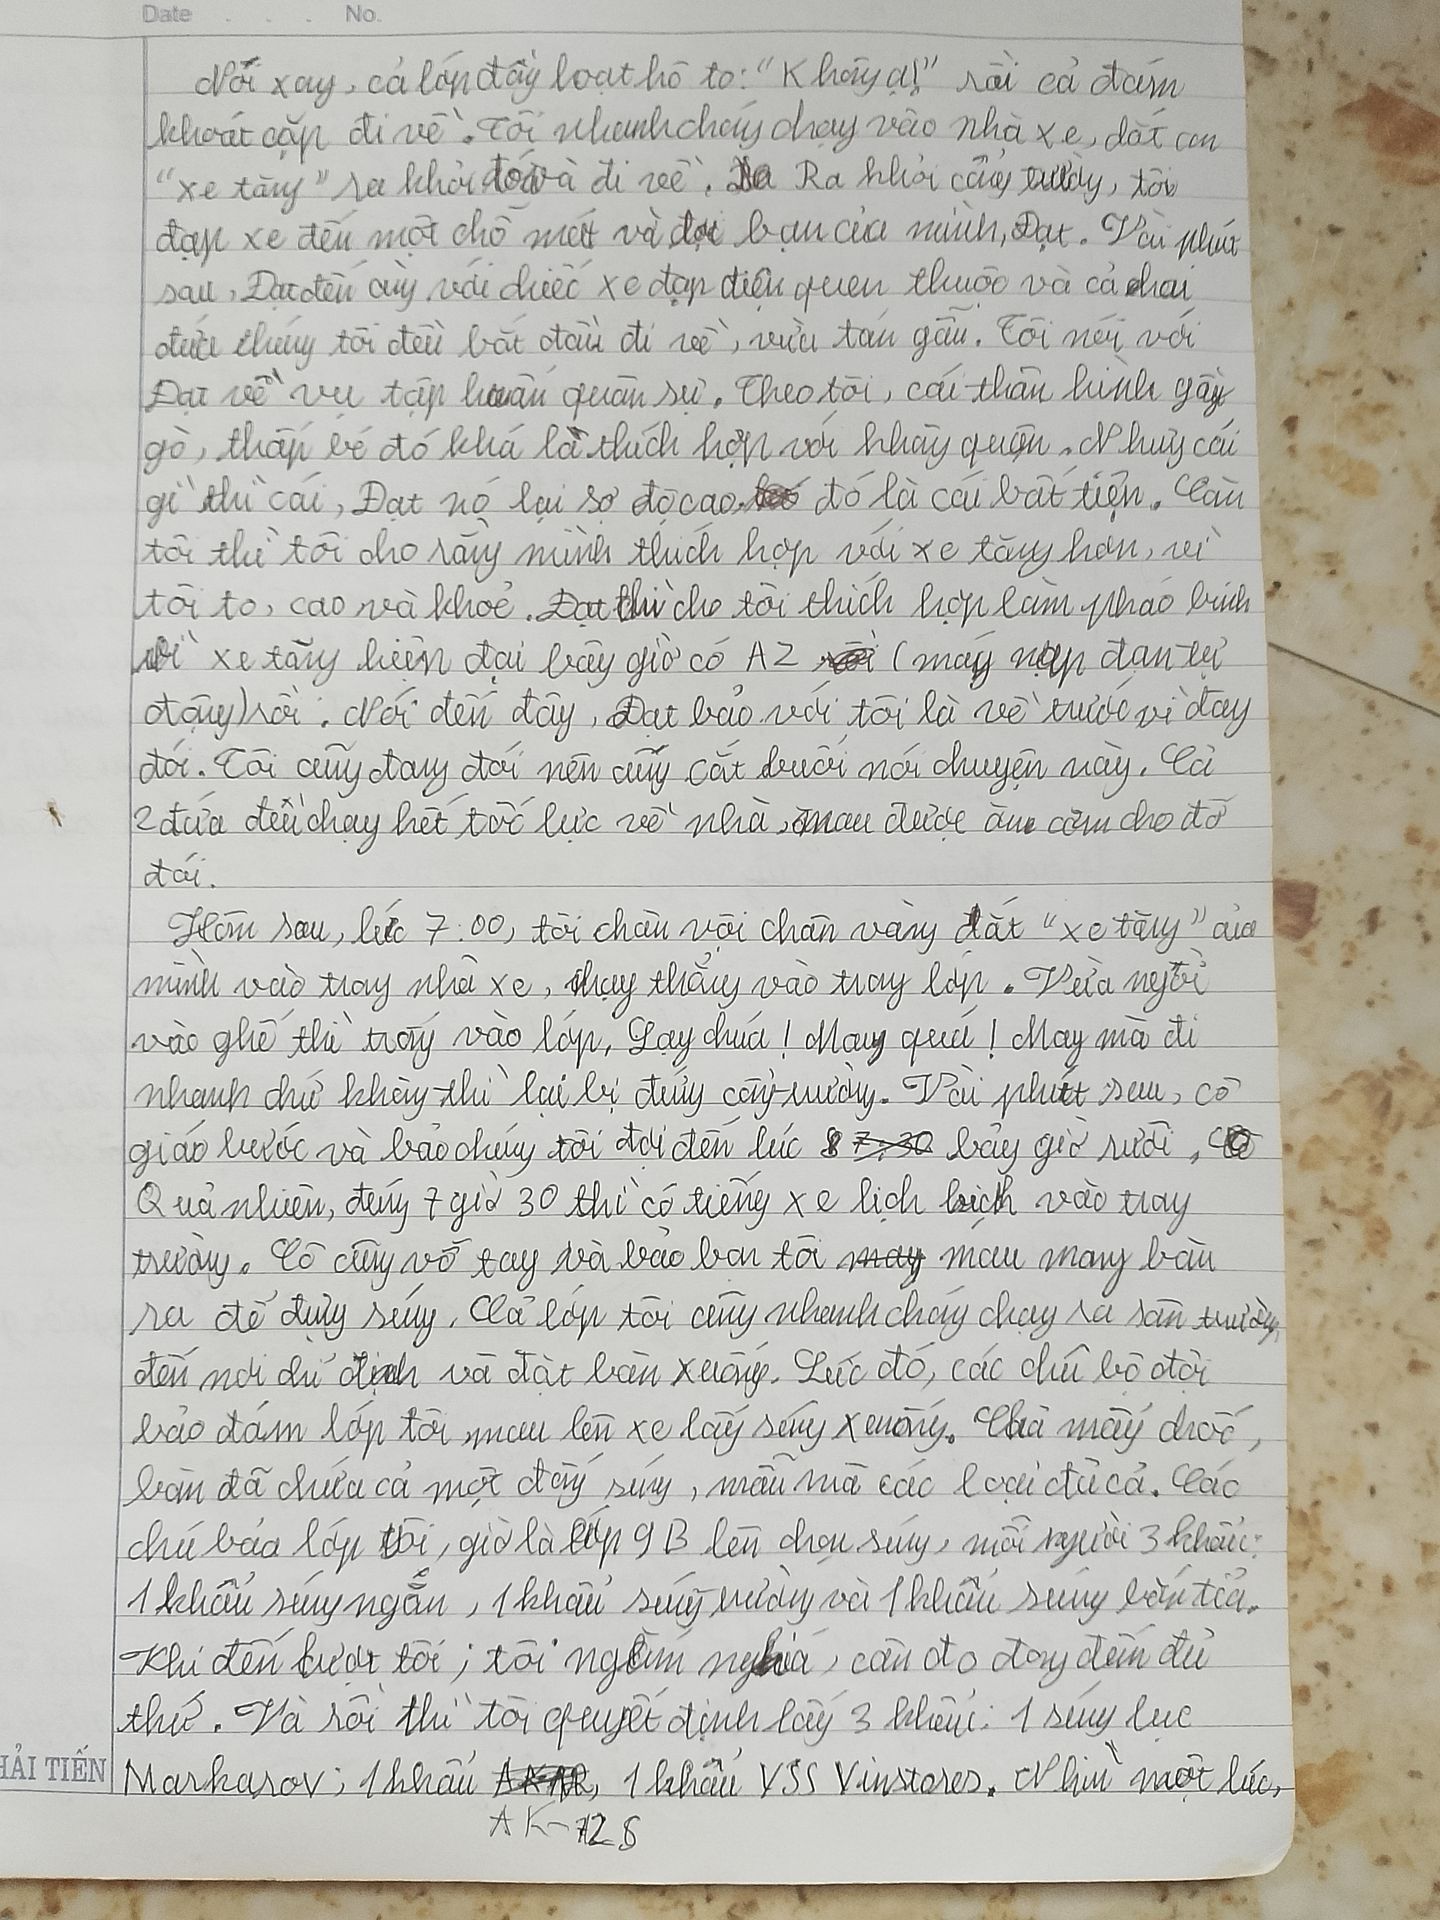 Date . . . No.
Nói xong, cả lớp đồng loạt hô to: "Không ạ!" rồi cả đám
khoát cặp đi về. Tôi nhanh chóng chạy vào nhà xe, dắt con
"xe tăng" ra khỏi đó và đi về. Ra khỏi cổng trường, tôi
đạp xe đến một chỗ mát và đợi bạn của mình, Đạt. Vài phút
sau, Đạt đến cùng với chiếc xe đạp điện quen thuộc và cả hai
đứa chúng tôi đều bắt đầu đi về, vừa tán gẫu. Tôi nói với
Đạt về vụ tập huấn quân sự. Theo tôi, cái thân hình gầy
gò, thấp bé đó khá là thích hợp với không quân. Nhưng cái
gì thì cái, Đạt nó lại sợ độ cao, đó là cái bất tiện. Còn
tôi thì tôi cho rằng mình thích hợp với xe tăng hơn, vì
tôi to, cao và khoẻ. Đạt thì cho tôi thích hợp làm pháo binh
vì xe tăng hiện đại bây giờ có AZ (máy nạp đạn tự
động) rồi. Nói đến đây, Đạt bảo với tôi là về trước vì đang
đói. Tôi cũng đang đói nên cũng cắt buổi nói chuyện này. Cả
2 đứa đều chạy hết tốc lực về nhà, mau được ăn cơm cho đỡ
đói.
Hôm sau, lúc 7:00, tôi chân vội chân vàng dắt "xe tăng" của
mình vào trong nhà xe, chạy thẳng vào trong lớp. Vừa ngồi
vào ghế thì trống vào lớp, Lạy chúa! May quá! May mà đi
nhanh chứ không thì lại bị đứng cổng trường. Vài phút sau, cô
giáo bước và bảo chúng tôi đợi đến lúc 7:30 bảy giờ rưỡi.
Quả nhiên, đúng 7 giờ 30 thì có tiếng xe lịch bịch vào trong
trường. Cô cũng vỗ tay và bảo bọn tôi may mau mang bàn
ra để đựng súng. Cả lớp tôi cũng nhanh chóng chạy ra sân trường,
đến nơi dứ định và đặt bàn xuống. Lúc đó, các chú bộ đội
bảo đám lớp tôi mau lên xe lấy súng xuống. Chả mấy chốc,
bàn đã chứa cả một đống súng, mẫu mã các loại đủ cả. Các
chú bảo lớp tôi, giờ là lớp 9B lên chọn súng, mỗi người 3 khẩu:
1 khẩu súng ngắn, 1 khẩu súng trường và 1 khẩu súng bắn tỉa.
Khi đến lượt tôi; tôi ngắm nghía, cân đo đong đếm đủ
thứ. Và rồi thì tôi quyết định lấy 3 khẩu: 1 súng lục
Markarov; 1 khẩu , 1 khẩu VSS Vinstores. Nhìn một lúc,
AK-12 S
HẢI TIẾN